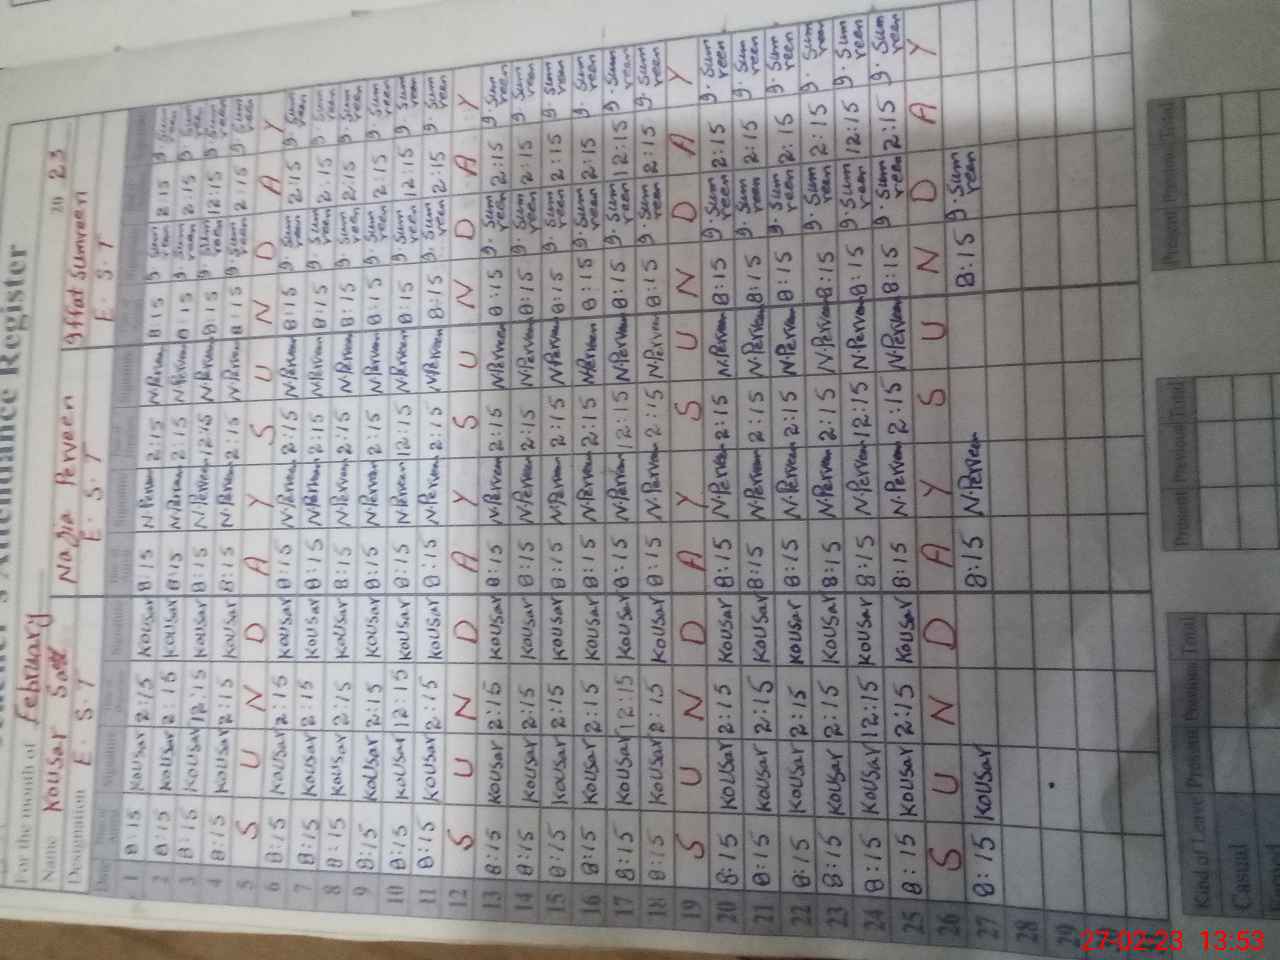 Attendance Register
For the month of February 20 23
Name Kousar Nazia Perveen Iffat Sumreen
Designation E. S. T E. S. T E. S. T
1 8:15 Kousar 2:15 Kousar 8:15 N.Perveen 2:15 N.Perveen 8:15 I. Sumreen 2:15 I. Sumreen
2 8:15 Kousar 2:15 Kousar 8:15 N.Perveen 2:15 N.Perveen 8:15 I. Sumreen 2:15 I. Sumreen
3 8:15 Kousar 12:15 Kousar 8:15 N.Perveen 12:15 N.Perveen 8:15 I. Sumreen 12:15 I. Sumreen
4 8:15 Kousar 2:15 Kousar 8:15 N.Perveen 2:15 N.Perveen 8:15 I. Sumreen 2:15 I. Sumreen
5 S U N D A Y S U N D A Y
6 8:15 Kousar 2:15 Kousar 8:15 N.Perveen 2:15 N.Perveen 8:15 I. Sumreen 2:15 I. Sumreen
7 8:15 Kousar 2:15 Kousar 8:15 N.Perveen 2:15 N.Perveen 8:15 I. Sumreen 2:15 I. Sumreen
8 8:15 Kousar 2:15 Kousar 8:15 N.Perveen 2:15 N.Perveen 8:15 I. Sumreen 2:15 I. Sumreen
9 8:15 Kousar 2:15 Kousar 8:15 N.Perveen 2:15 N.Perveen 8:15 I. Sumreen 2:15 I. Sumreen
10 8:15 Kousar 12:15 Kousar 8:15 N.Perveen 12:15 N.Perveen 8:15 I. Sumreen 12:15 I. Sumreen
11 8:15 Kousar 2:15 Kousar 8:15 N.Perveen 2:15 N.Perveen 8:15 I. Sumreen 2:15 I. Sumreen
12 S U N D A Y S U N D A Y
13 8:15 Kousar 2:15 Kousar 8:15 N.Perveen 2:15 N.Perveen 8:15 I. Sumreen 2:15 I. Sumreen
14 8:15 Kousar 2:15 Kousar 8:15 N.Perveen 2:15 N.Perveen 8:15 I. Sumreen 2:15 I. Sumreen
15 8:15 Kousar 2:15 Kousar 8:15 N.Perveen 2:15 N.Perveen 8:15 I. Sumreen 2:15 I. Sumreen
16 8:15 Kousar 2:15 Kousar 8:15 N.Perveen 2:15 N.Perveen 8:15 I. Sumreen 2:15 I. Sumreen
17 8:15 Kousar 12:15 Kousar 8:15 N.Perveen 12:15 N.Perveen 8:15 I. Sumreen 12:15 I. Sumreen
18 8:15 Kousar 2:15 Kousar 8:15 N.Perveen 2:15 N.Perveen 8:15 I. Sumreen 2:15 I. Sumreen
19 S U N D A Y S U N D A Y
20 8:15 Kousar 2:15 Kousar 8:15 N.Perveen 2:15 N.Perveen 8:15 I. Sumreen 2:15 I. Sumreen
21 8:15 Kousar 2:15 Kousar 8:15 N.Perveen 2:15 N.Perveen 8:15 I. Sumreen 2:15 I. Sumreen
22 8:15 Kousar 2:15 Kousar 8:15 N.Perveen 2:15 N.Perveen 8:15 I. Sumreen 2:15 I. Sumreen
23 8:15 Kousar 2:15 Kousar 8:15 N.Perveen 2:15 N.Perveen 8:15 I. Sumreen 2:15 I. Sumreen
24 8:15 Kousar 12:15 Kousar 8:15 N.Perveen 12:15 N.Perveen 8:15 I. Sumreen 12:15 I. Sumreen
25 8:15 Kousar 2:15 Kousar 8:15 N.Perveen 2:15 N.Perveen 8:15 I. Sumreen 2:15 I. Sumreen
26 S U N D A Y S U N D A Y
27 8:15 Kousar 8:15 N.Perveen 8:15 I. Sumreen
28
29
Kind of Leave Present Previous Total Present Previous Total Present Previous Total
Casual
27-02-23 13:53